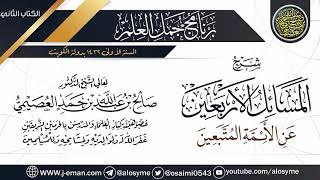 الكتاب الثاني
برنامج جمل العلم
السنة الأولى ١٤٣٦ بدولة الكويت
شرح
المسائل الأربعين
عن الأئمة المتبعين
لمعالي الشيخ الدكتور
صالح بن عبد الله بن حمد العصيمي
عضو هيئة كبار العلماء والمدرس بالحرمين الشريفين
غفر الله له ولوالديه ولمشايخه وللمسلمين
www.j-eman.com
@osaimi0543
/alosyme
youtube.com/alosyme